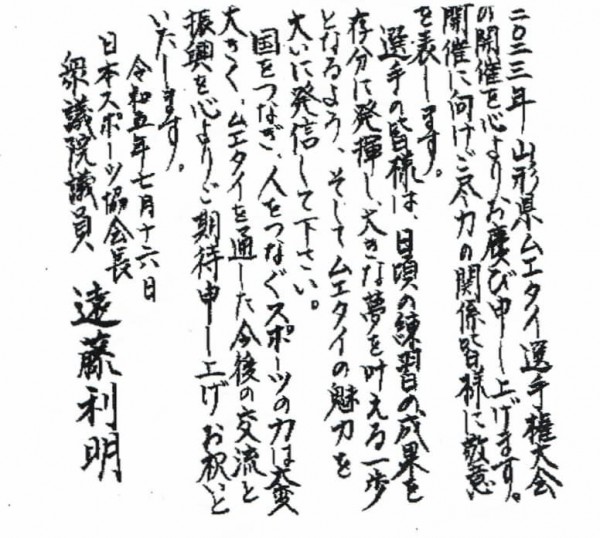 二〇二三年山形県ムエタイ選手権大会
の開催を心よりお慶び申し上げます。
開催に向けご尽力の関係皆様に敬意
を表します。
選手の皆様は、日頃の練習の成果を
存分に発揮し、大きな夢を叶える一歩
となるよう、そしてムエタイの魅力を
大いに発信して下さい。
国をつなぎ、人をつなぐスポーツの力は大変
大きく、ムエタイを通した今後の交流と
振興を心よりご期待申し上げお祝いと
いたします。
令和五年七月十六日
日本スポーツ協会長
衆議院議員 遠藤利明